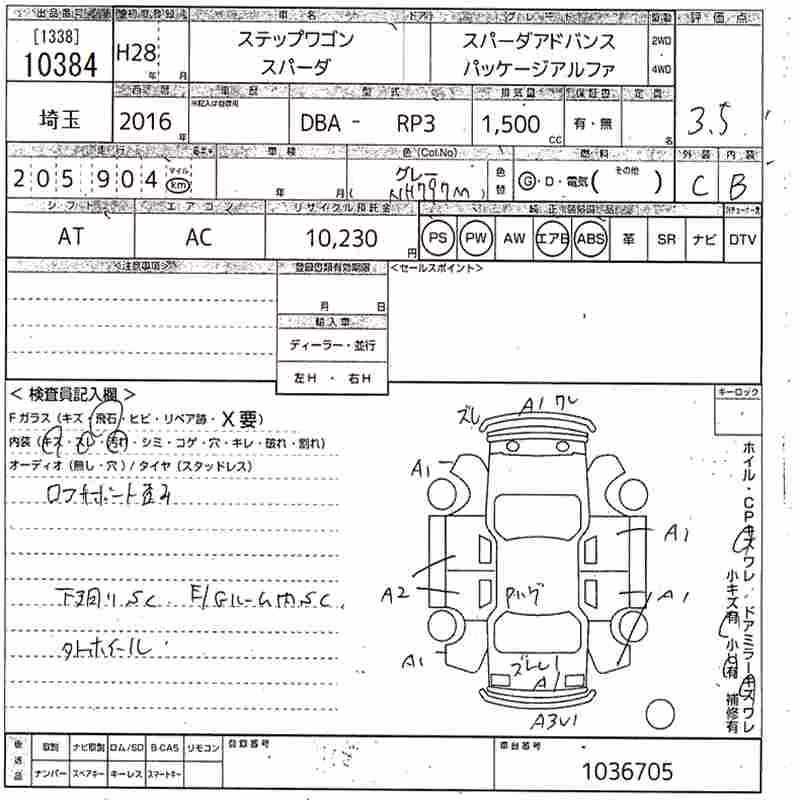 出品番号 車名 ドア グレード 駆動 評価点
[1338]
10384
H28
年 月
ステップワゴン
スパーダ
スパーダアドバンス
パッケージアルファ
2WD
・
4WD
車歴 型式 排気量 保証書 定員
※記入は自家用
埼玉
2016 年
DBA - RP3
1,500 CC
有・無
名
3.5
走行 車検 色(Col.No) 燃料 外装 内装
205904
マイル
km
年 月
グレー
(NH797M)
色替
G・D・電気( その他 )
C B
シフト エアコン リサイクル預託金 純正装備品
AT
AC
10,230 円
PS PW AW エアB ABS 革 SR ナビ DTV
<注意事項> 登録書類有効期限 <セールスポイント>
月 日
輸入車
ディーラー・並行
左H ・ 右H
<検査員記入欄>
キーロック
Fガラス (キズ・飛石・ヒビ・リペア跡・X要)
内装 (キズ・スレ・汚れ・シミ・コゲ・穴・キレ・破れ・割れ)
オーディオ (無し・穴) / タイヤ (スタッドレス)
下廻りSC E/Gルーム内SC
ズレ A1 ワレ
A1
A1
A2
A1
A1
A1
ホイル・CPキズワレ / ドアミラーキズワレ
小キズ有 小凹有 補修有
後送品
取説 ナビ取説 ロム/SD B-CAS リモコン
ナンバー スペアキー キーレス スマートキー
登録番号
車台番号
1036705